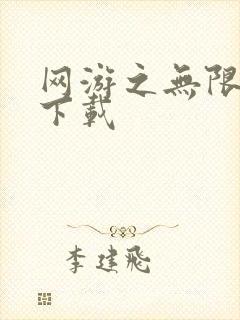 网游之無限
下載
李建飛